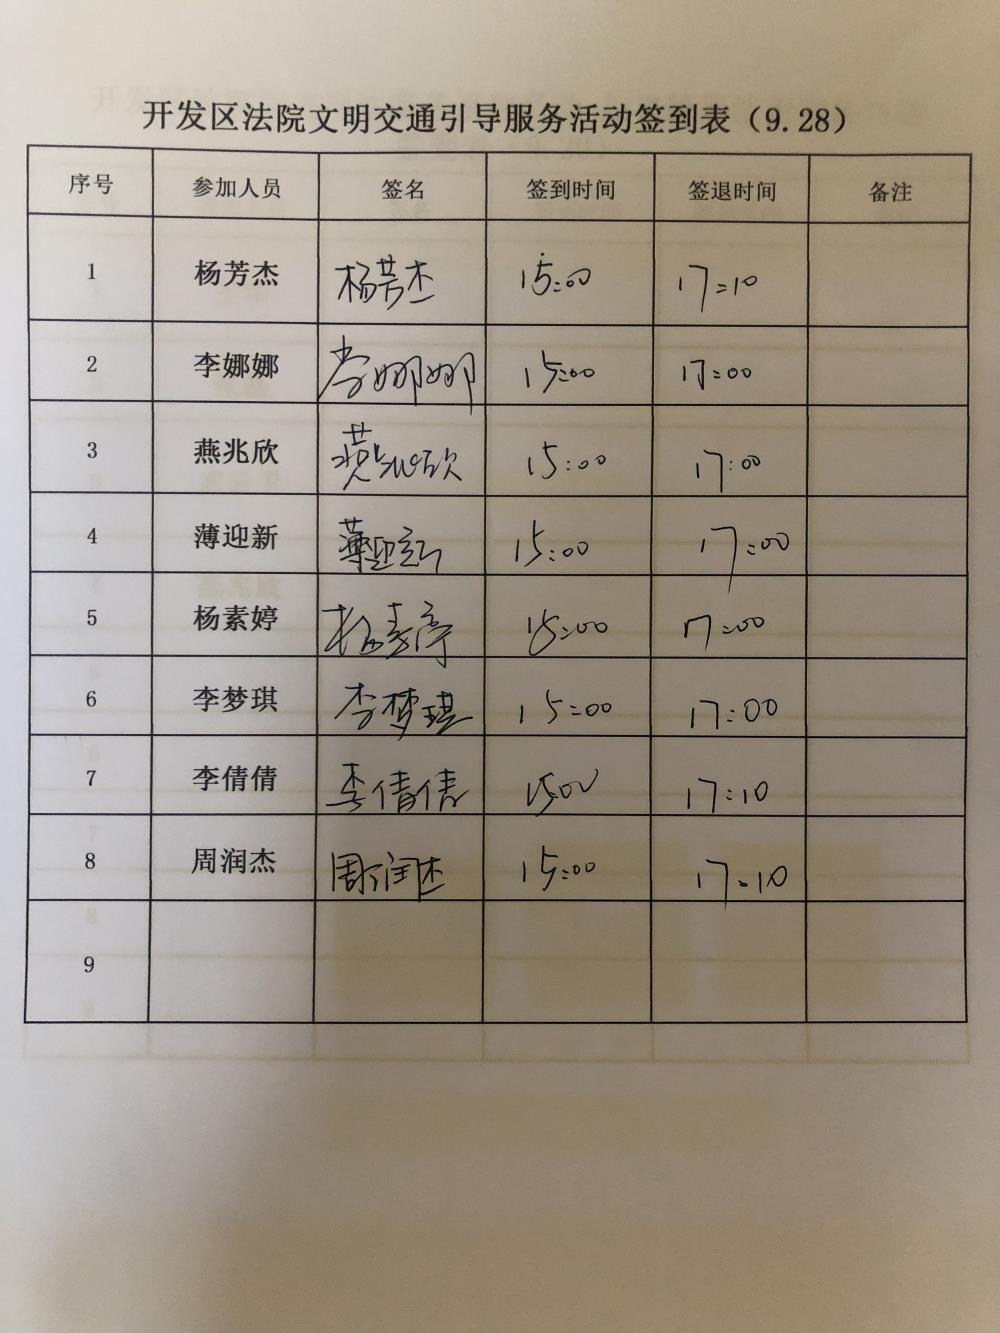 开发区法院文明交通引导服务活动签到表（9.28）
序号 参加人员 签名 签到时间 签退时间 备注
1 杨芳杰 杨芳杰 15:00 17:10
2 李娜娜 李娜娜 15:00 17:00
3 燕兆欣 燕兆欣 15:00 17:00
4 薄迎新 薄迎新 15:00 17:00
5 杨素婷 杨素婷 15:00 17:00
6 李梦琪 李梦琪 15:00 17:00
7 李倩倩 李倩倩 15:00 17:10
8 周润杰 周润杰 15:00 17:10
9